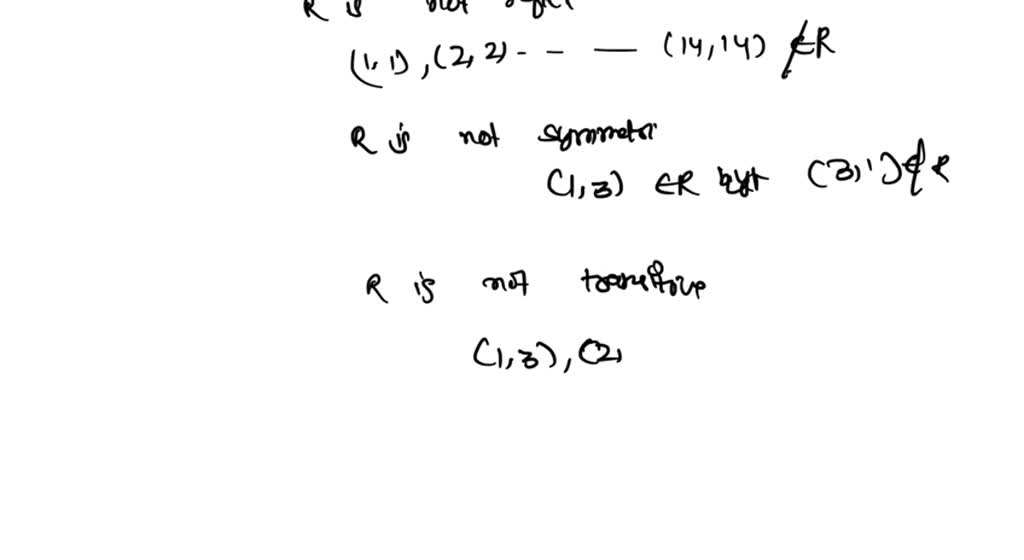 R is not
(1,1), (2,2) - - — (14,14) ∉R
R is not symmetri
(1,3) ∈R but (3,1)∉ R
R is not transitive
(1,3), (2,